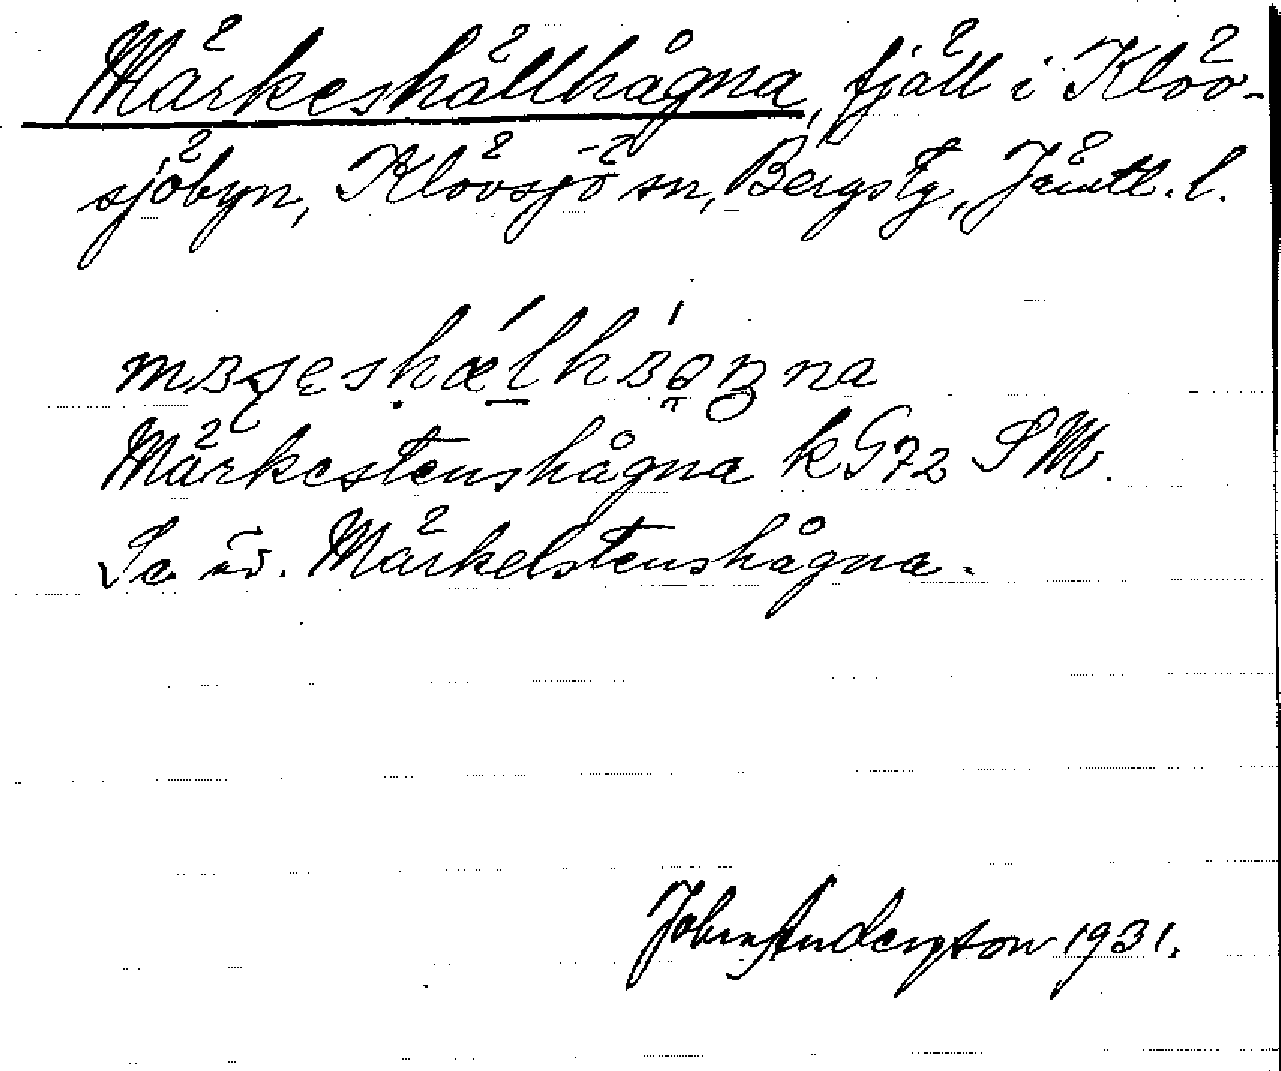 Märkeshällhågna, fjäll i Klöv-
sjöbyn, Klövsjö sn, Bergs tg, Jämtl. l.
Märkestenshågna k G72 SM.
Se äv. Märkelstenshågna.
John Andersson 1931.